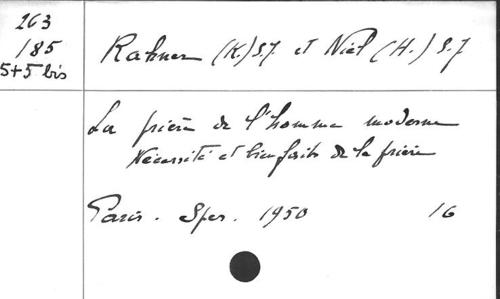 263
185
5+5 bis
Rahner (K.) S.J. et Niel (H.) S.J
La prière de l'homme moderne
Nécessité et bienfaits de la prière
Paris. Spes. 1950 16